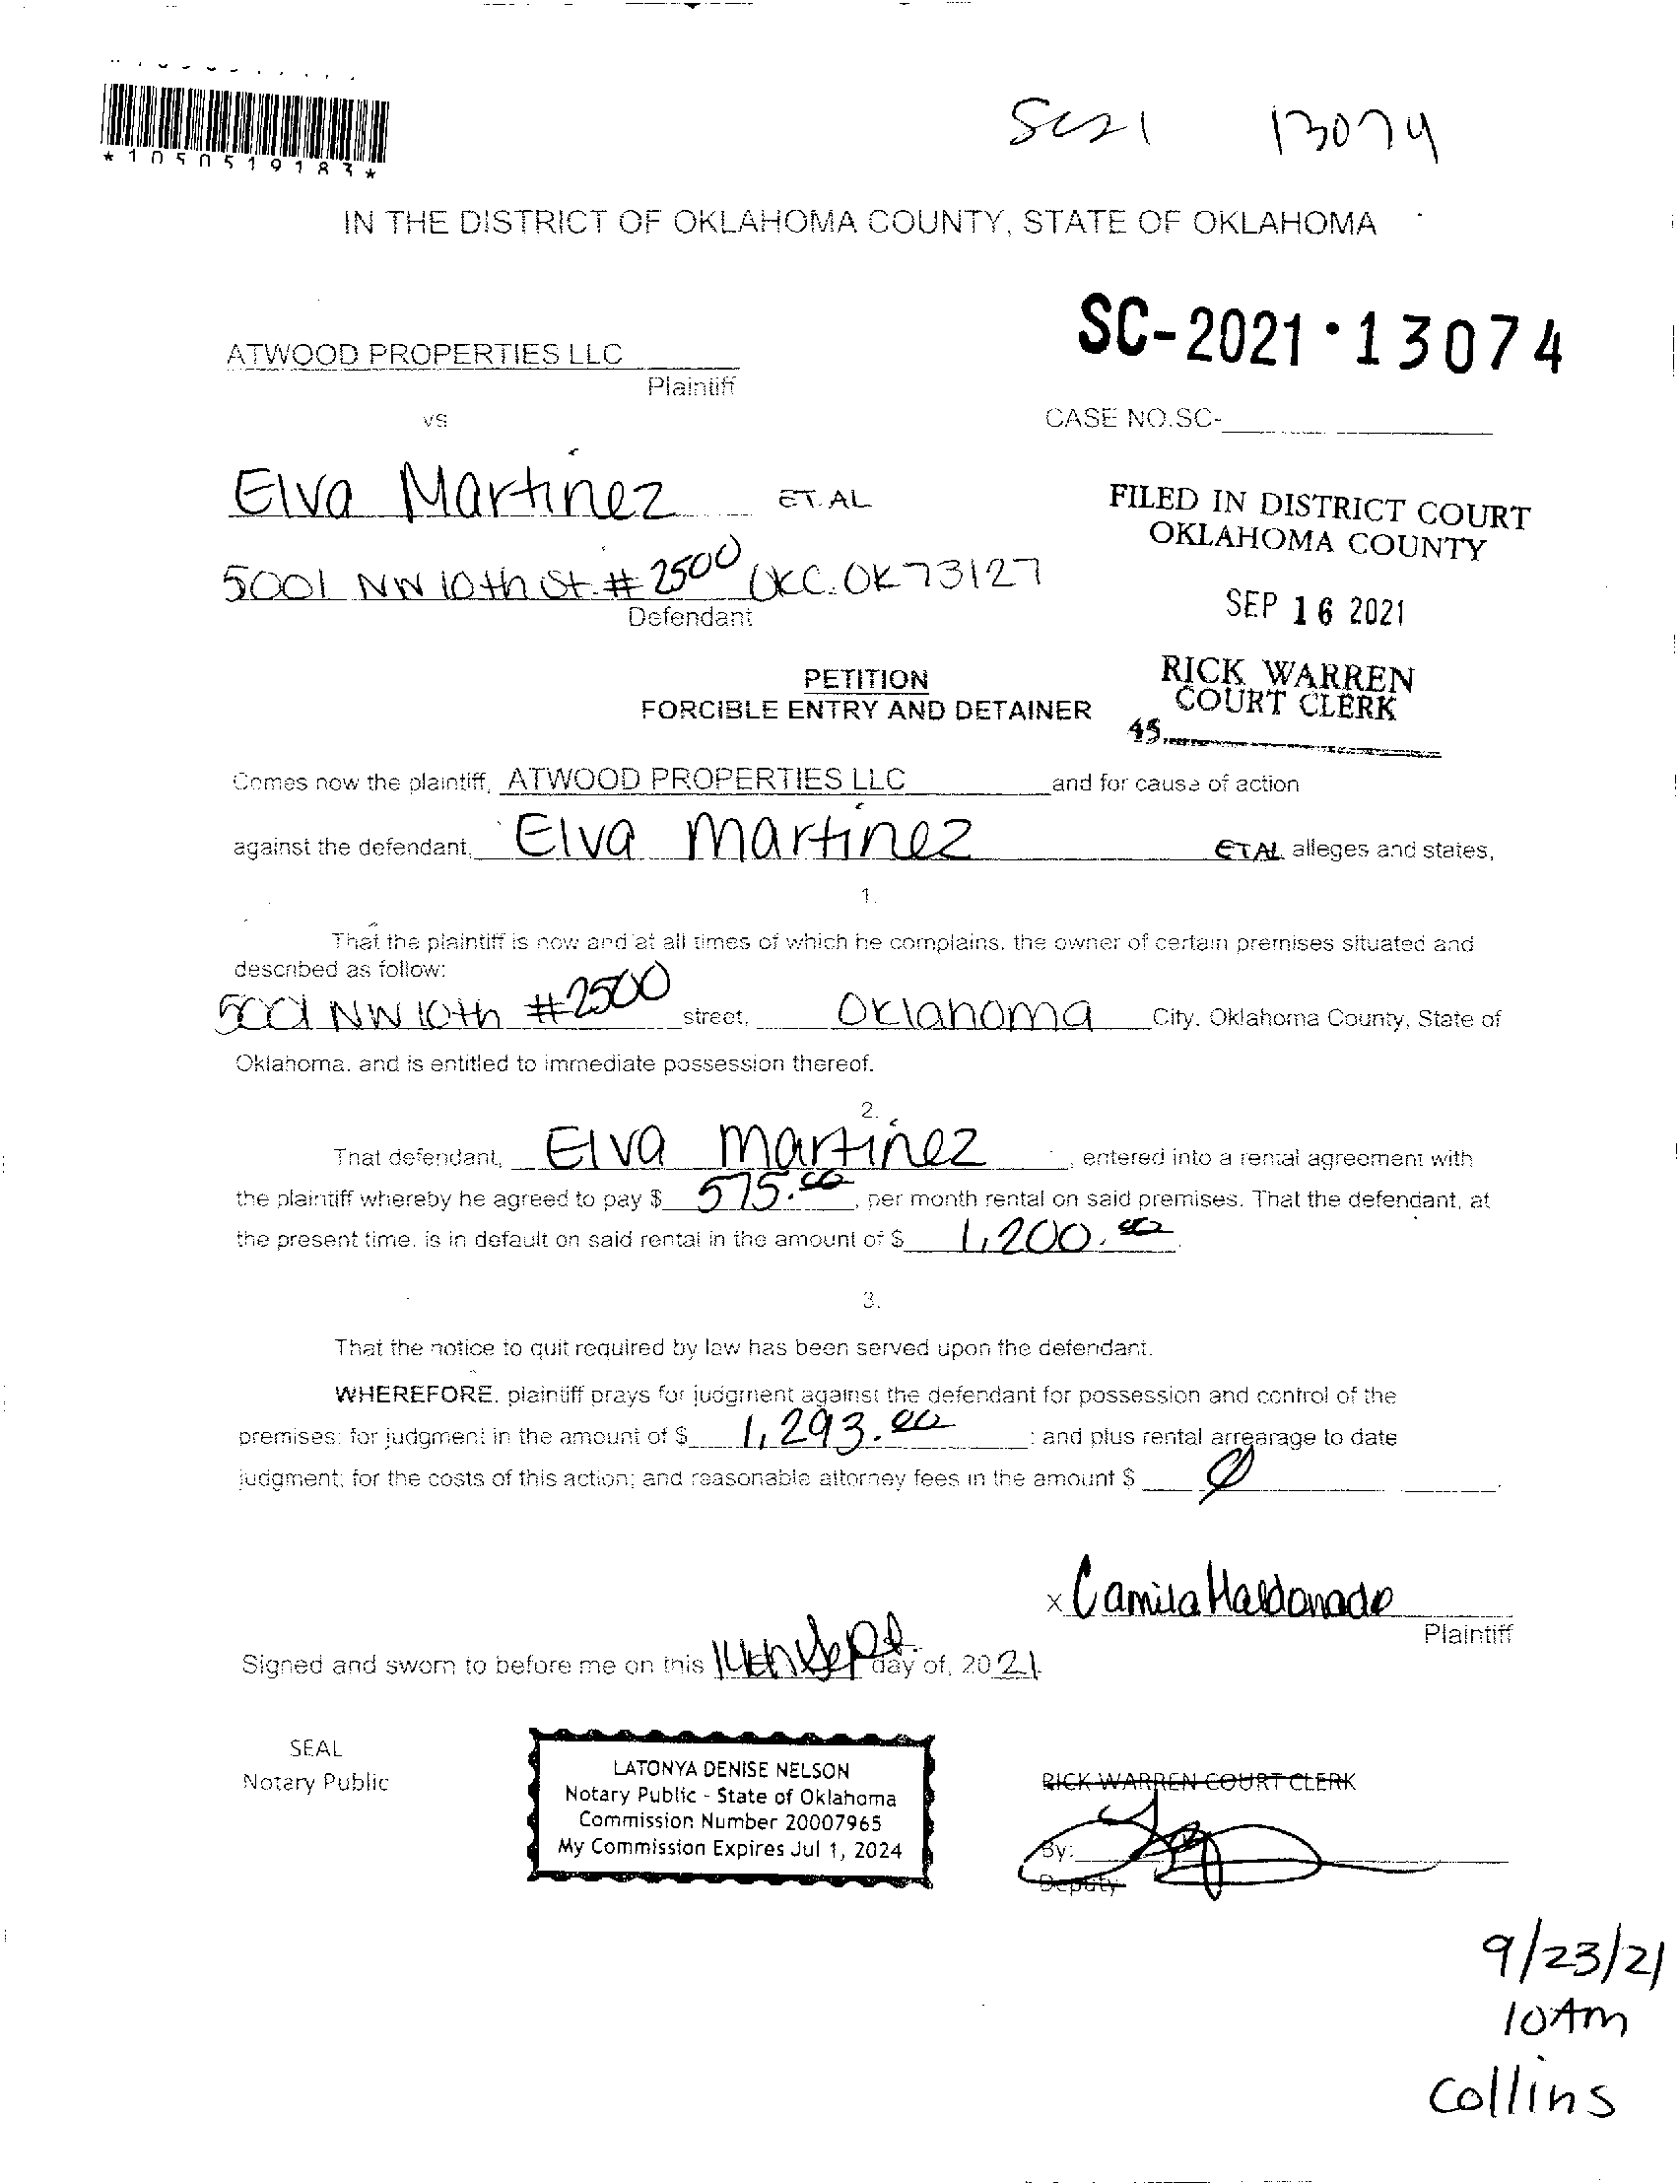 *1050519183*
SC21 13074
IN THE DISTRICT OF OKLAHOMA COUNTY, STATE OF OKLAHOMA
SC-2021·13074
ATWOOD PROPERTIES LLC
Plaintiff
vs
CASE NO.SC-
Elva Martinez ET.AL
FILED IN DISTRICT COURT
OKLAHOMA COUNTY
5001 NW 10th St. #2500 OKC. OK 73127
Defendant
SEP 16 2021
RICK WARREN
COURT CLERK
45
PETITION
FORCIBLE ENTRY AND DETAINER
Comes now the plaintiff, ATWOOD PROPERTIES LLC and for cause of action
against the defendant, Elva Martinez ETAL alleges and states,
1.
That the plaintiff is now and at all times of which he complains, the owner of certain premises situated and
described as follow:
5001 NW 10th #2500 street, Oklahoma City, Oklahoma County, State of
Oklahoma, and is entitled to immediate possession thereof.
2.
That defendant, Elva Martinez, entered into a rental agreement with
the plaintiff whereby he agreed to pay $ 575.00, per month rental on said premises. That the defendant, at
the present time, is in default on said rental in the amount of $ 1,200.00.
3.
That the notice to quit required by law has been served upon the defendant.
WHEREFORE, plaintiff prays for judgment against the defendant for possession and control of the
premises; for judgment in the amount of $ 1,293.00; and plus rental arrearage to date
judgment; for the costs of this action; and reasonable attorney fees in the amount $ Ø.
x Camila Maldonado
Plaintiff
Signed and sworn to before me on this 14th Sept. day of, 2021.
SEAL
Notary Public
LATONYA DENISE NELSON
Notary Public - State of Oklahoma
Commission Number 20007965
My Commission Expires Jul 1, 2024
RICK WARREN COURT CLERK
By:
Deputy
9/23/21
10Am
Collins